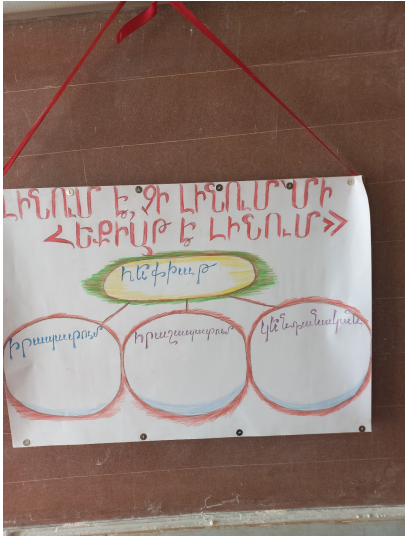 ԼԻՆՈՒՄ Է, ՉԻ ԼԻՆՈՒՄ ՄԻ
ՀԵՔԻԱԹ Է ԼԻՆՈՒՄ»
Հեքիաթ
Իրապատում
Հրաշապատում
Կենդանական